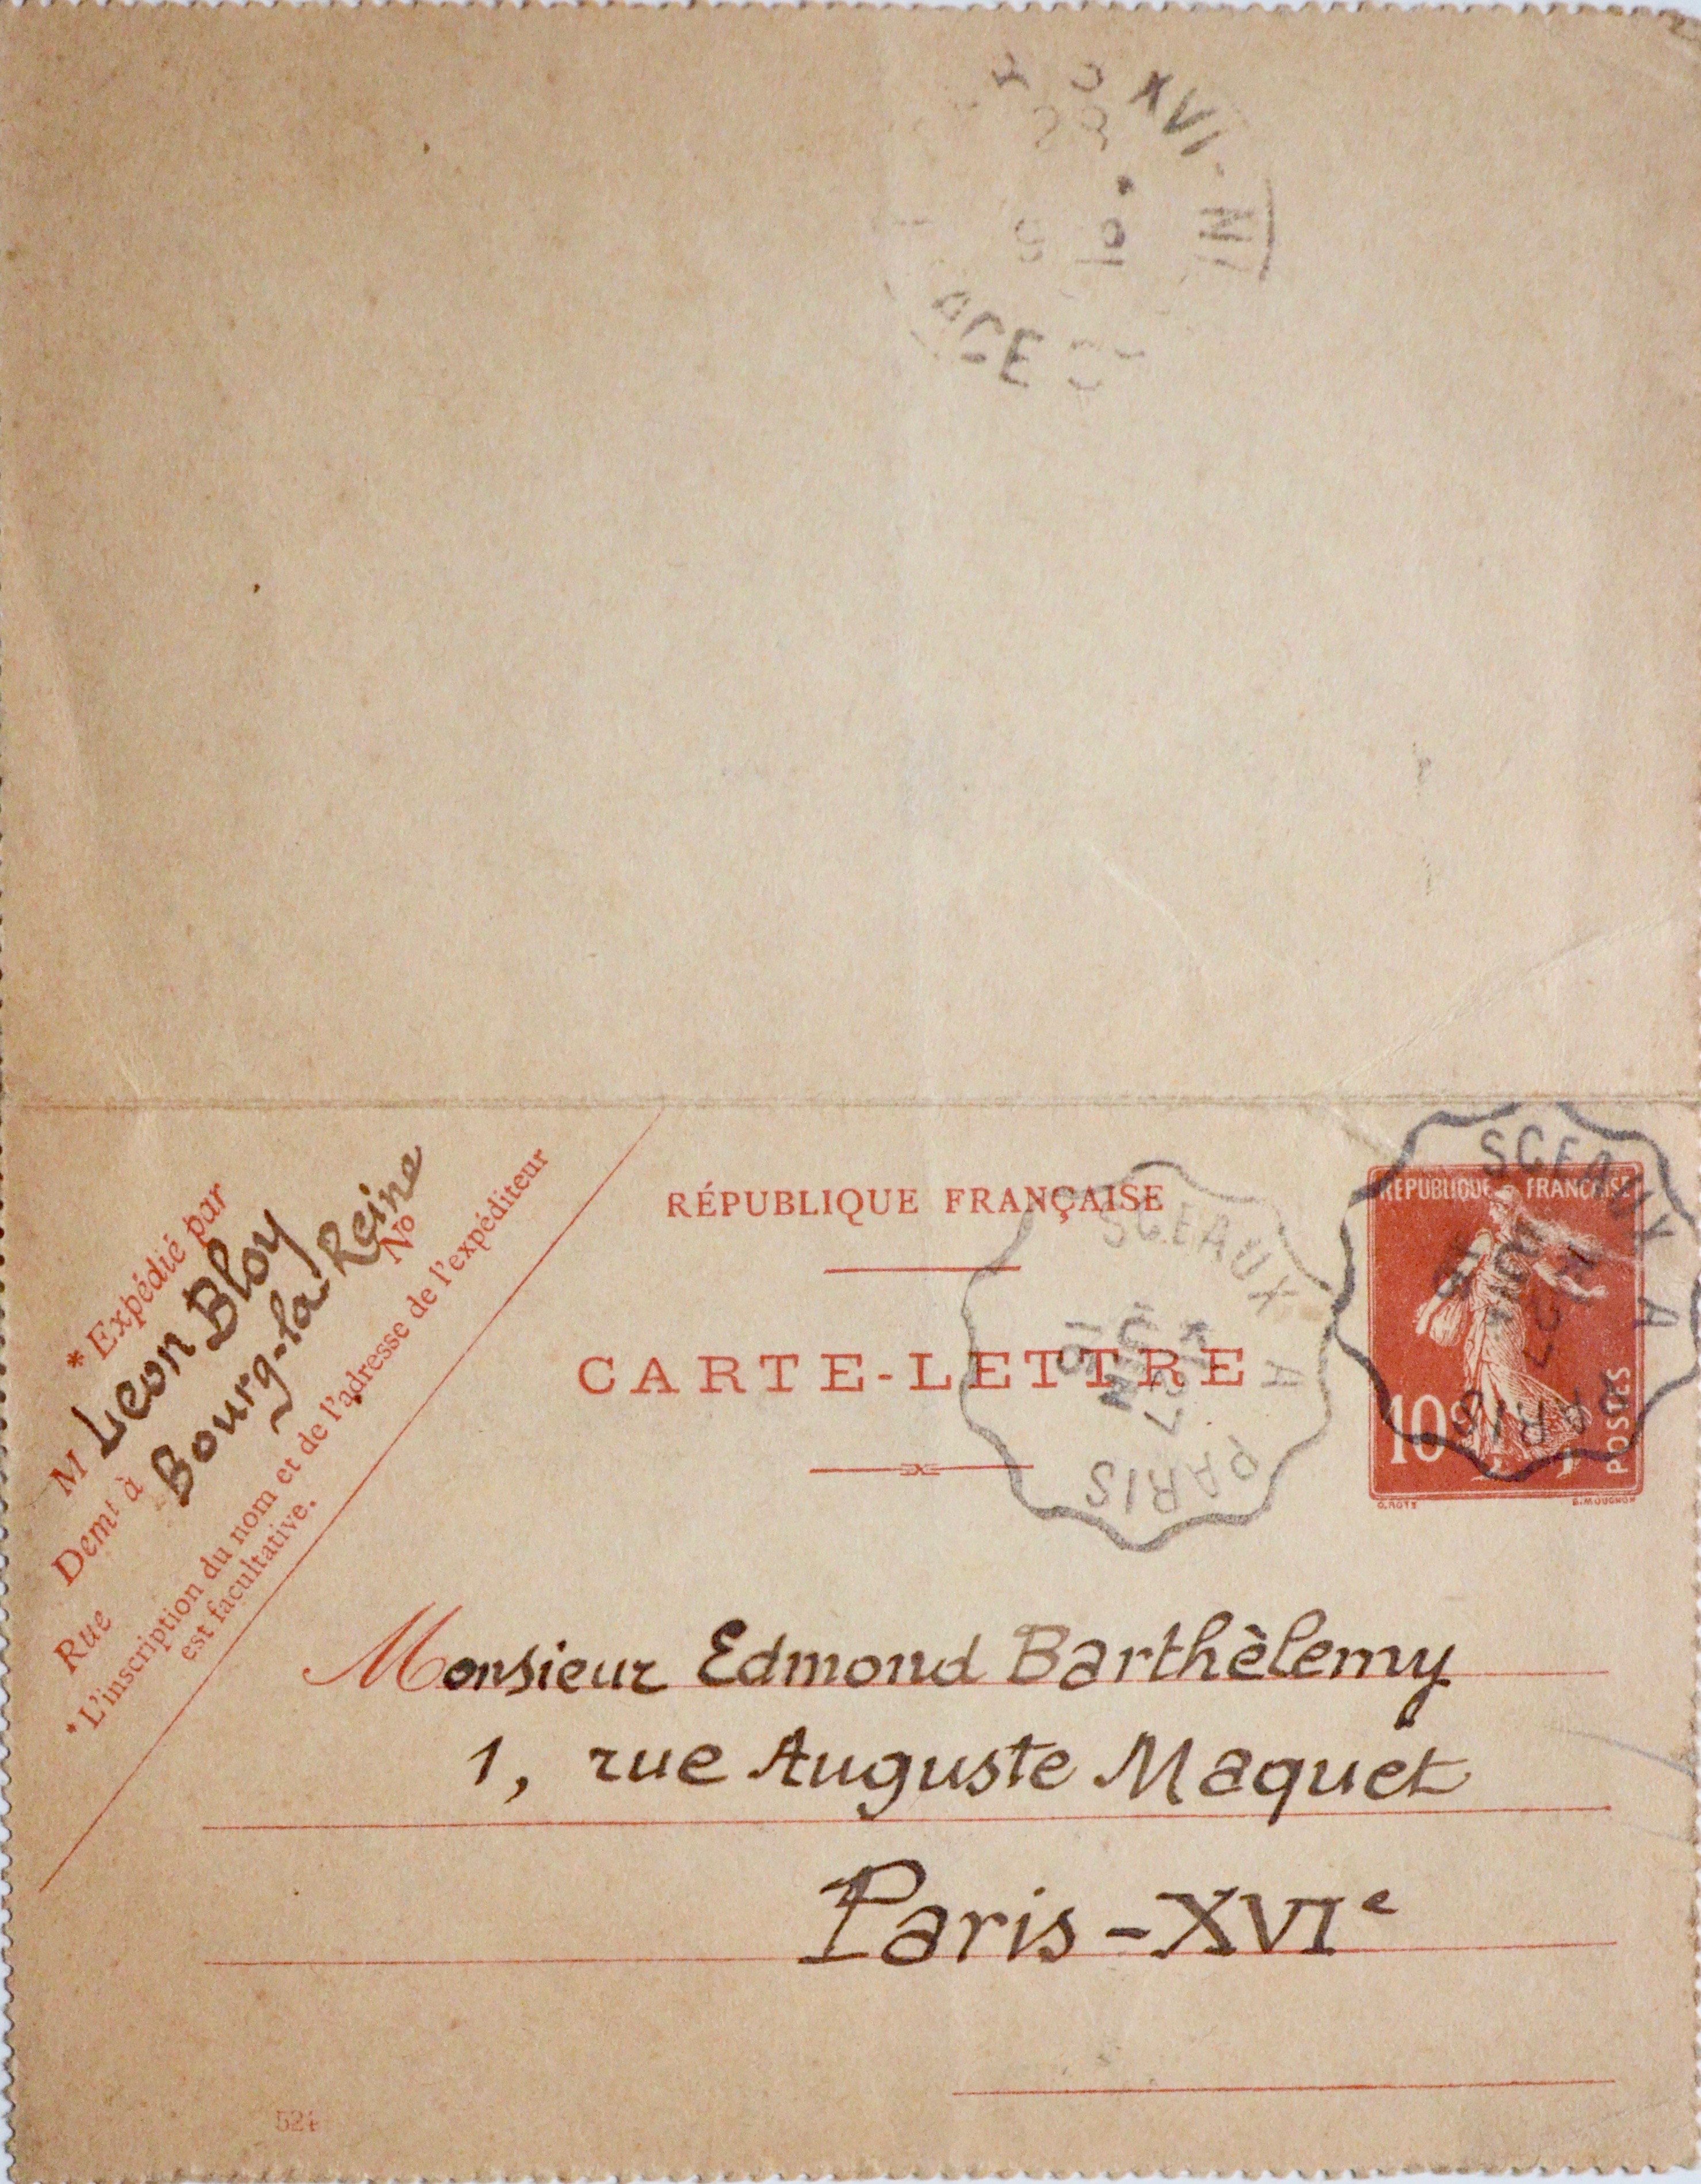 XVI
RÉPUBLIQUE FRANÇAISE
CARTE-LETTRE
* Expédié par
M Leon Bloy
Demt à Bourg-la-Reine
Rue No
*L'inscription du nom et de l'adresse de l'expéditeur
est facultative.
SCEAUX A
27
JUIN
PARIS
SCEAUX A
27
PARIS
RÉPUBLIQUE FRANÇAISE
10c
POSTES
O.ROTY
E.MOUCHON
Monsieur Edmond Barthèlemy
1, rue Auguste Maquet
Paris-XVIe